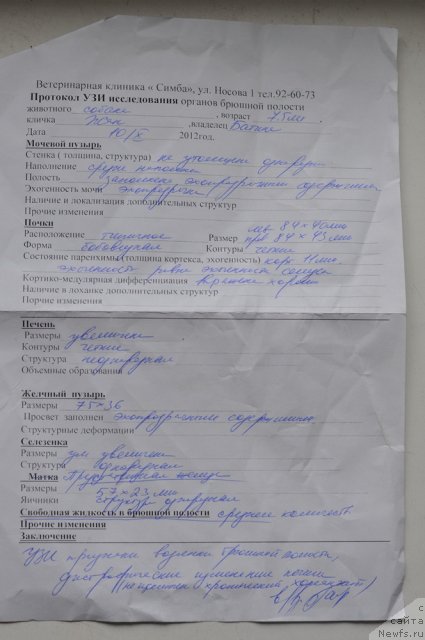 Ветеринарная клиника « Симба», ул. Носова 1 тел.92-60-73
Протокол УЗИ исследования органов брюшной полости
животного собака , возраст 7,5 лет
кличка , владелец
Дата 10/X 2012год.
Мочевой пузырь
Стенка ( толщина, структура) не утолщены
Наполнение средне наполнен
Полость заполнена эхопрозрачным содержимым
Эхогенность мочи эхопрозрачна
Наличие и локализация дополнительных структур
Прочие изменения
Почки лев 84 × 40 мм
Расположение типичное Размер пр 84 × 43 мм
Форма бобовидная Контуры четкие
Состояние паренхимы(толщина кортекса, эхогенность) корт 11 мм,
эхогенность равна эхогенности
Кортико-медулярная дифференциация выражена хорошо
Наличие в лоханке дополнительных структур
Порчие изменения
Печень
Размеры увеличены
Контуры четкие
Структура неоднородная
Объемные образования
Желчный пузырь
Размеры 75×36
Просвет заполнен эхопрозрачным содержимым
Структурные деформации
Селезенка
Размеры увеличены
Структура однородная
Матка
Размеры 57 × 23 мм
Яичники структура однородная
Свободная жидкость в брюшной полости среднее количество
Прочие изменения
Заключение
УЗИ признаки водянки брюшной полости,
дистрофические изменение печени
хронический
с сайта
Newfs.ru